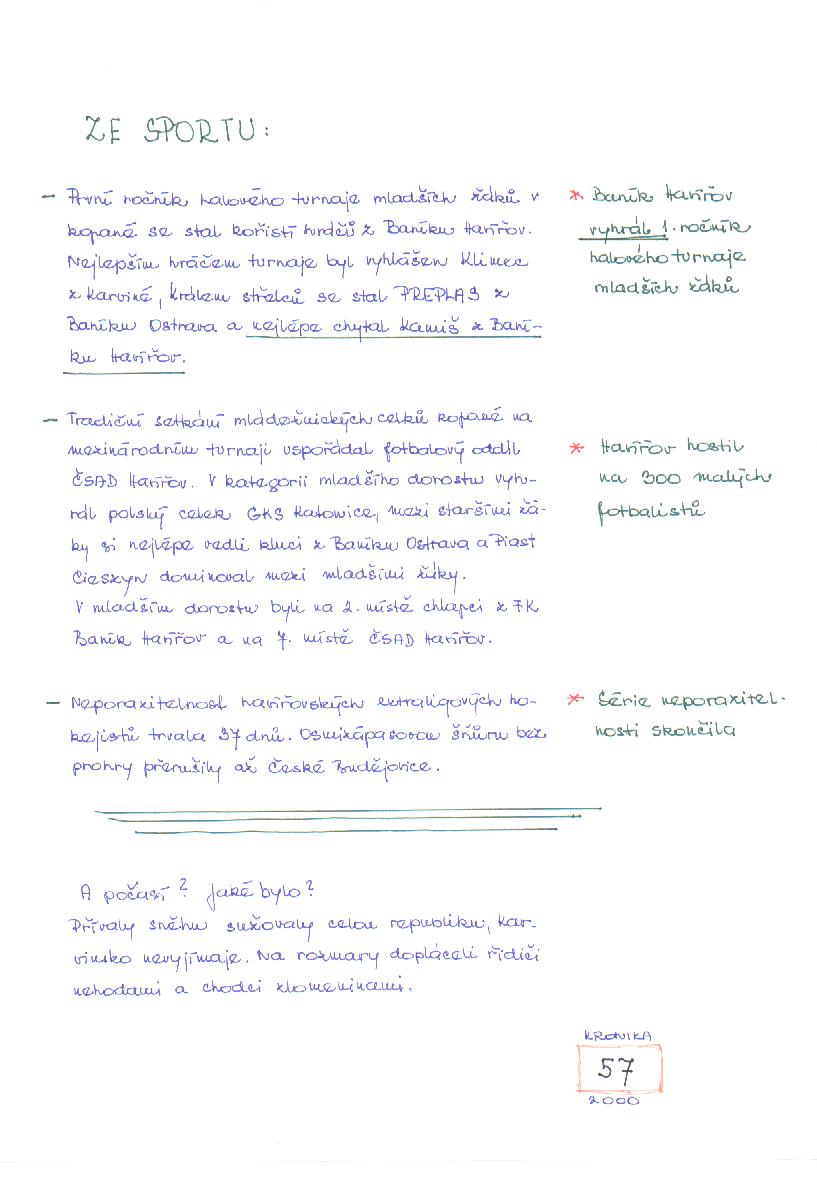 ZE SPORTU:
– První ročník halového turnaje mladších žáků v
kopané se stal kořistí hrdčů z Baníku Havířov.
Nejlepším hráčem turnaje byl vyhlášen Klimec
z Karviné, králem střelců se stal PREPLAS z
Baníku Ostrava a nejlépe chytal Kamiš z Baní-
ku Havířov.
* Baník Havířov
vyhrál 1. ročník
halového turnaje
mladších žáků
– Tradiční setkání mládežnických celků kopané na
mezinárodním turnaji uspořádal fotbalový oddíl
ČSAD Havířov. V kategorii mladšího dorostu vyh-
rál polský celek GKS Katowice, mezi staršími žá-
ky si nejlépe vedli kluci z Baníku Ostrava a Piast
Cieszyn dominoval mezi mladšími žáky.
V mladším dorostu byli na 2. místě chlapci z FK
Baník Havířov a na 7. místě ČSAD Havířov.
* Havířov hostil
na 300 malých
fotbalistů
– Neporazitelnost havířovských extraligových ho-
kejistů trvala 37 dnů. Osmizápasovou šňůru bez
prohry přerušily až České Budějovice.
* Série neporazitel-
nosti skončila
A počasí? Jaké bylo?
Přívaly sněhu sužovaly celou republiku, Kar-
vinsko nevyjímaje. Na rozmary dopláceli řidiči
nehodami a chodci zlomeninami.
KRONIKA
57
2000